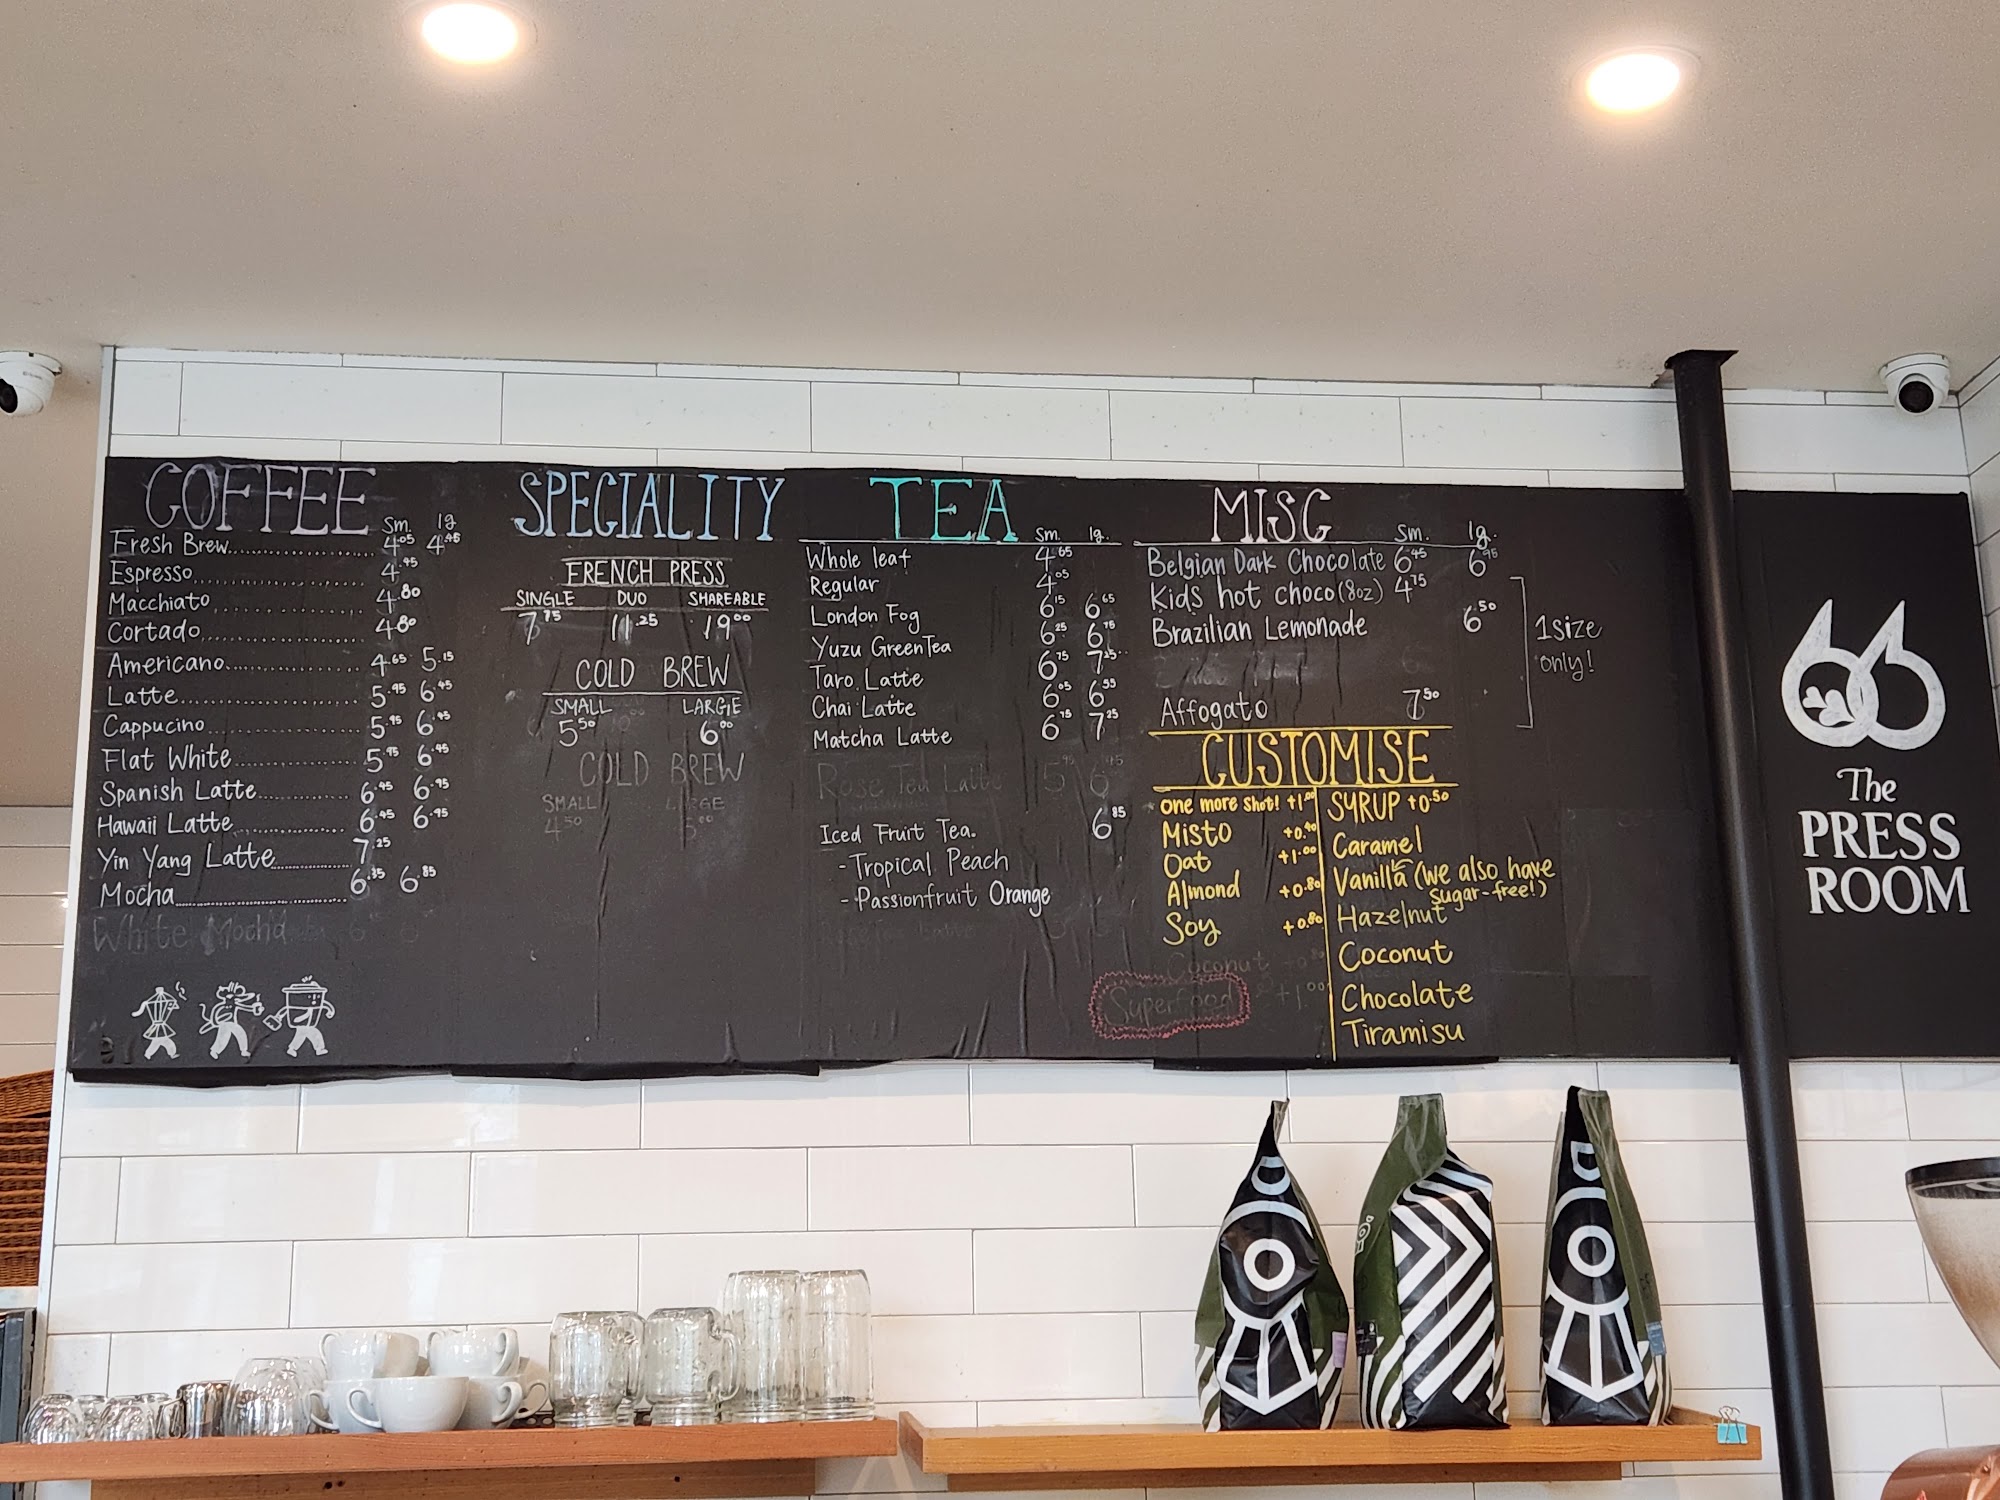 COFFEE
Sm. lg
Fresh Brew 4.05 4.45
Espresso 4.45
Macchiato 4.80
Cortado 4.80
Americano 4.65 5.15
Latte 5.95 6.45
Cappucino 5.95 6.45
Flat White 5.95 6.45
Spanish Latte 6.45 6.95
Hawaii Latte 6.45 6.95
Yin Yang Latte 7.25
Mocha 6.35 6.85
White Mocha
SPECIALITY
FRENCH PRESS
SINGLE DUO SHAREABLE
11.25 19.00
COLD BREW
SMALL LARGE
5.50 6.00
COLD BREW
SMALL LARGE
4.50 5.00
TEA
Sm. lg.
Whole leaf 4.65
Regular 4.05
London Fog 6.15 6.65
Yuzu Green Tea 6.25 6.75
Taro Latte 6.75 7.25
Chai Latte 6.05 6.55
Matcha Latte 6.75 7.25
Rose Tea Latte 5.95 6.45
Iced Fruit Tea. 6.85
- Tropical Peach
- Passionfruit Orange
MISC
Sm. lg.
Belgian Dark Chocolate 6.45 6.95
Kids hot choco (8oz) 4.75
Brazilian Lemonade 6.50
1 size
only!
Affogato 7.50
CUSTOMISE
one more shot! +1.00
Misto +0.40
Oat +1.00
Almond +0.80
Soy +0.80
Coconut
Superfood +1.00
SYRUP +0.50
Caramel
Vanilla (we also have
sugar-free!)
Hazelnut
Coconut
Chocolate
Tiramisu
The
PRESS
ROOM